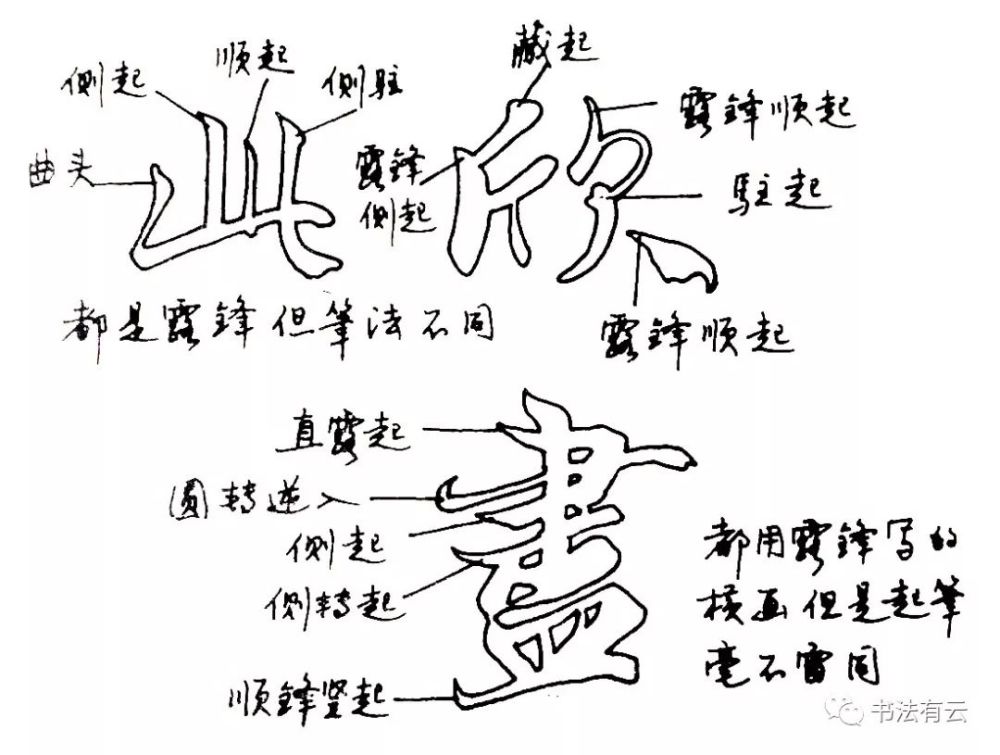 侧起
顺起
侧驻
曲头
藏起
露锋顺起
露锋
侧起
驻起
露锋顺起
都是露锋但筆法不同
直露起
圆转逆入
侧起
侧转起
顺锋竖起
都用露锋写的
横画但是起筆
毫不雷同
书法有云